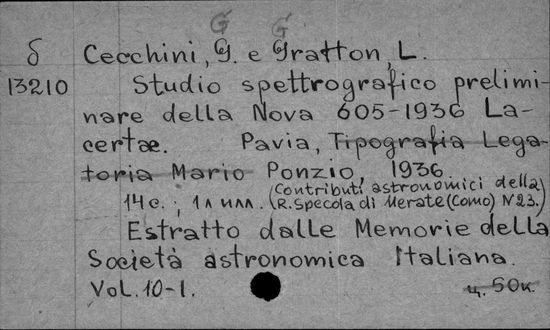 G G
δ Cecchini, G. e Gratton, L.
13210 Studio spettrografico prelimi-
nare della Nova 605-1936 La-
certae. Pavia, Tipografia Lega-
toria Mario Ponzio, 1936
14 с.; 1 л илл. (Contributi astronomici della
R. Specola di Merate (Como) N 23.)
Estratto dalle Memorie della
Società astronomica Italiana.
Vol. 10-1. ц. 50к.